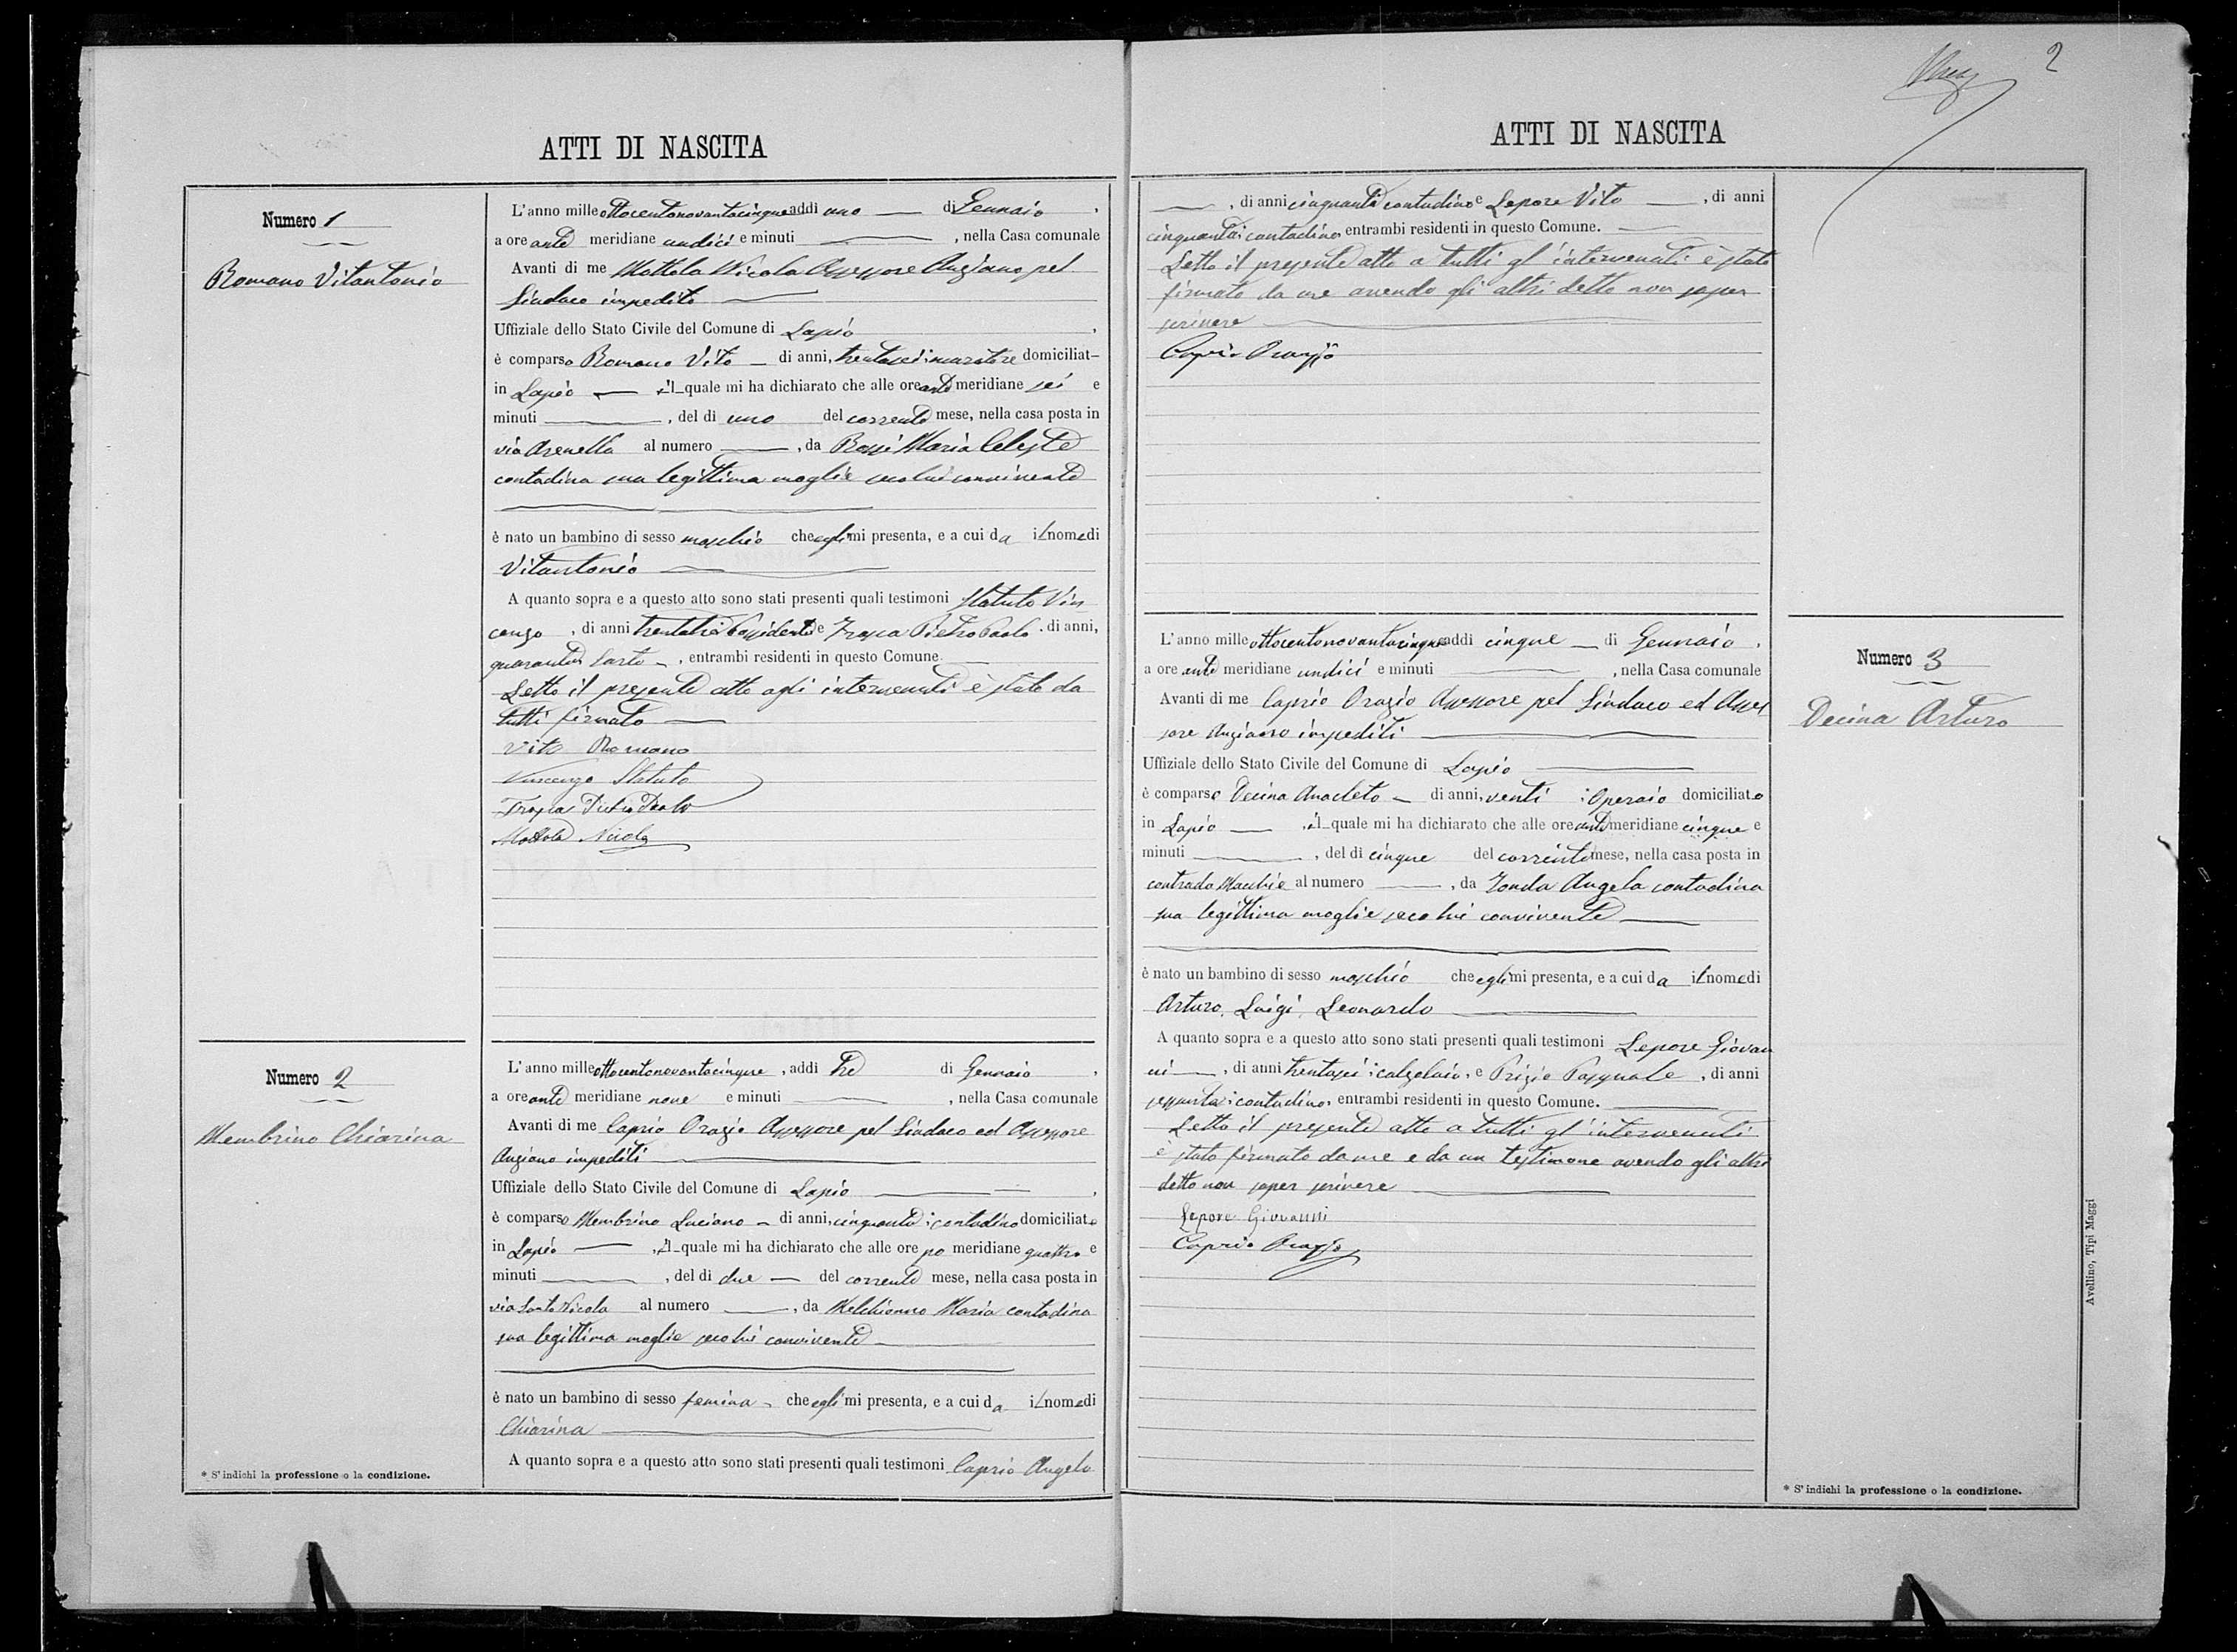 ATTI DI NASCITA
Numero 1
Romano Vitantonio
L'anno mille ottocentonovantacinque addì uno di Gennaio,
a ore ante meridiane undici e minuti , nella Casa comunale
Avanti di me Mottola Nicola Assessore Anziano pel
Sindaco impedito
Uffiziale dello Stato Civile del Comune di Lapio,
è comparso Romano Vito di anni, trentasei muratore domiciliat
in Lapio il quale mi ha dichiarato che alle ore ante meridiane sei e
minuti , del dì uno del corrente mese, nella casa posta in
via Arenella al numero , da Rossi Maria Celeste
contadina sua legittima moglie seco lui convivente
è nato un bambino di sesso maschio che egli mi presenta, e a cui da il nome di
Vitantonio
A quanto sopra e a questo atto sono stati presenti quali testimoni Statuto Vin
cenzo, di anni trentatre Possidente e Pietro Paolo, di anni,
Sarto, entrambi residenti in questo Comune.
Letto il presente atto agli intervenuti è stato da
tutti firmato
Vito Romano
Vincenzo Statuto
Pietro Paolo
Mottola Nicola
Numero 2
Membrino Chiarina
L'anno mille ottocentonovantacinque, addì tre di Gennaio,
a ore ante meridiane nove e minuti , nella Casa comunale
Avanti di me Caprio Orazio Assessore pel Sindaco ed Assessore
Anziano impediti
Uffiziale dello Stato Civile del Comune di Lapio,
è comparso Membrino Luciano di anni, cinquanta contadino domiciliato
in Lapio , il quale mi ha dichiarato che alle ore po meridiane quattro e
minuti , del dì due del corrente mese, nella casa posta in
via Santo Nicola al numero , da Melchionno Maria contadina
sua legittima moglie seco lui convivente
è nato un bambino di sesso femina che egli mi presenta, e a cui da il nome di
Chiarina
A quanto sopra e a questo atto sono stati presenti quali testimoni Caprio Angelo
* S'indichi la professione o la condizione.
2
ATTI DI NASCITA
, di anni cinquanta contadino e Lepore Vito , di anni
contadino entrambi residenti in questo Comune.
Letto il presente atto a tutti gl'intervenuti è stato
firmato da me avendo gli altri detto non saper
scrivere
Caprio Orazio
Numero 3
Decina Arturo
L'anno mille ottocentonovantacinque addì cinque di Gennaio,
a ore ante meridiane undici e minuti , nella Casa comunale
Avanti di me Caprio Orazio Assessore pel Sindaco ed Asses
sore Anziano impediti
Uffiziale dello Stato Civile del Comune di Lapio
è comparso Decina Anacleto di anni, venti Operaio domiciliato
in Lapio , il quale mi ha dichiarato che alle ore ante meridiane cinque e
minuti , del dì cinque del corrente mese, nella casa posta in
contrada Macchie al numero , da Zonda Angela contadina
sua legittima moglie seco lui convivente
è nato un bambino di sesso maschio che egli mi presenta, e a cui da il nome di
Arturo, Luigi, Leonardo
A quanto sopra e a questo atto sono stati presenti quali testimoni Lepore Giovan
ni , di anni trentasei calzolaio, e Prizio Pasquale, di anni
sessanta contadino, entrambi residenti in questo Comune.
Letto il presente atto a tutti gl'intervenuti
è stato firmato da me e da un testimone avendo gli altri
detto non saper scrivere
Lepore Giovanni
Caprio Orazio
* S'indichi la professione o la condizione.
Avellino, Tipi Maggi